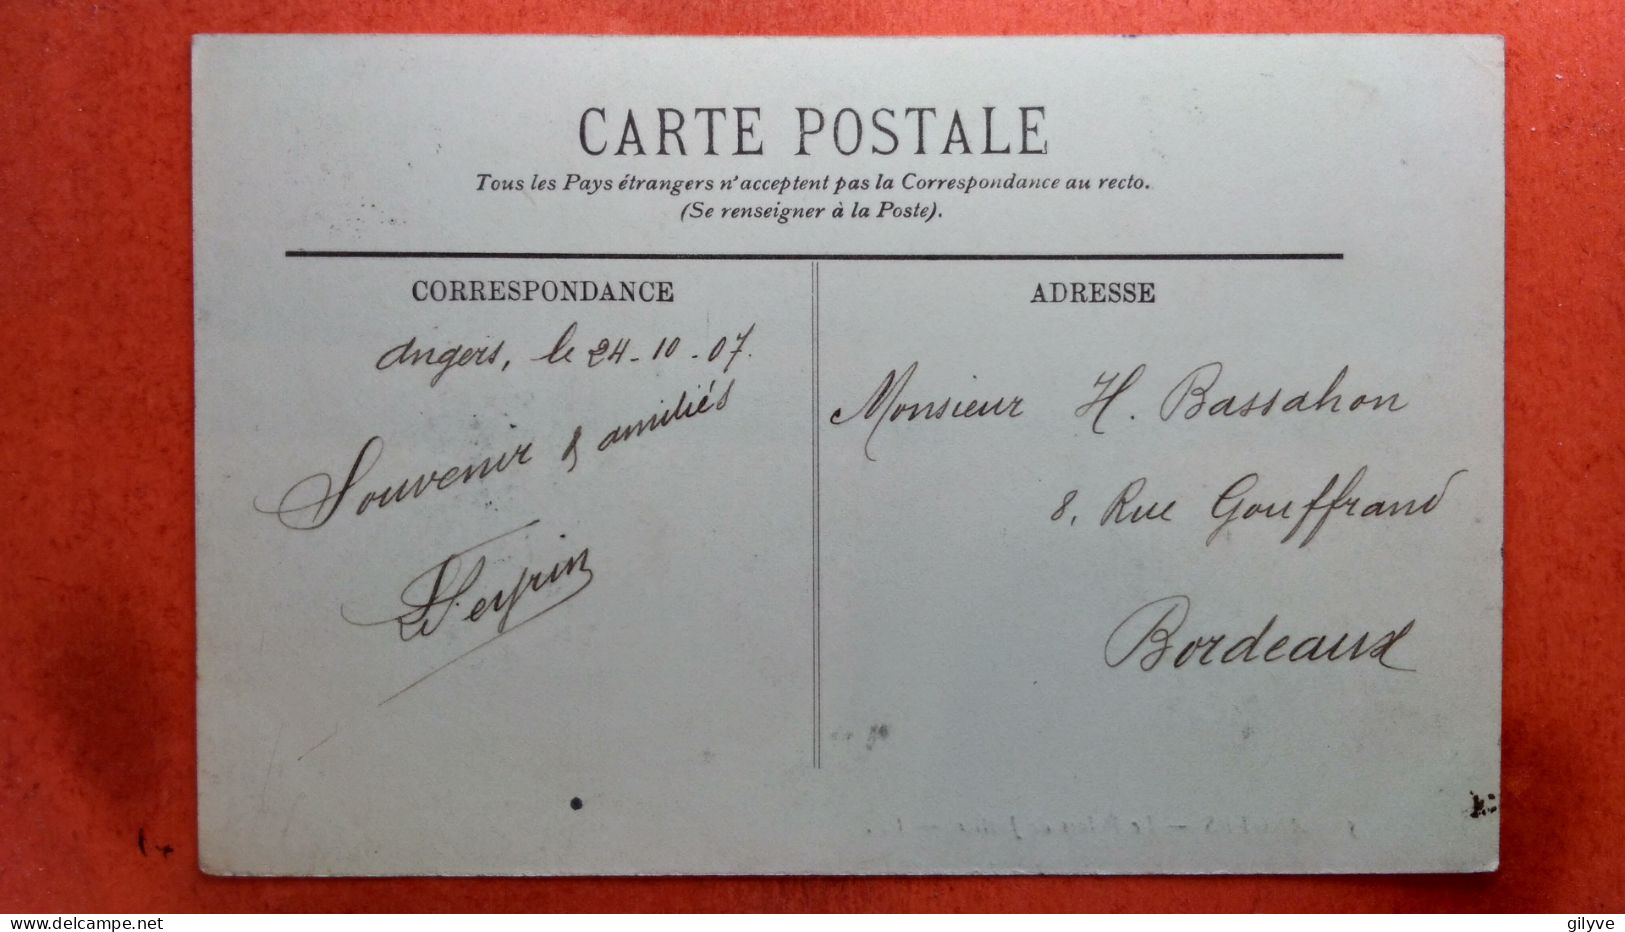 CARTE POSTALE
Tous les Pays étrangers n'acceptent pas la Correspondance au recto.
(Se renseigner à la Poste).
CORRESPONDANCE
Angers, le 24-10-07.
Souvenir & amitiés
ADRESSE
Monsieur H. Bassahon
8, Rue Gouffrand
Bordeaux
gilyve